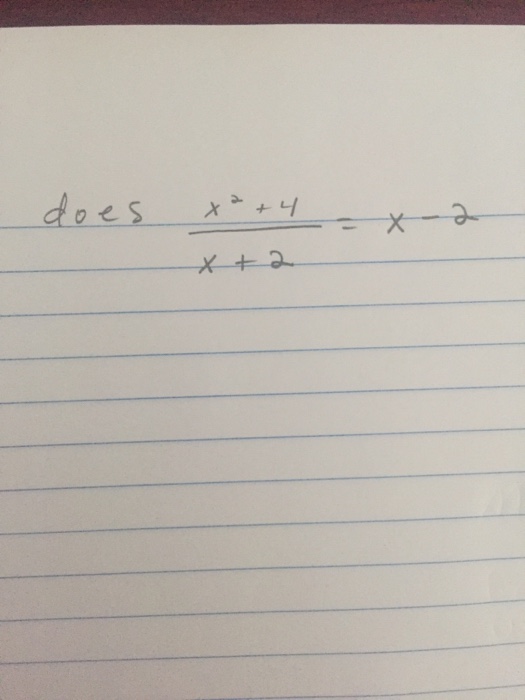 does (x² + 4)/(x + 2) = x - 2